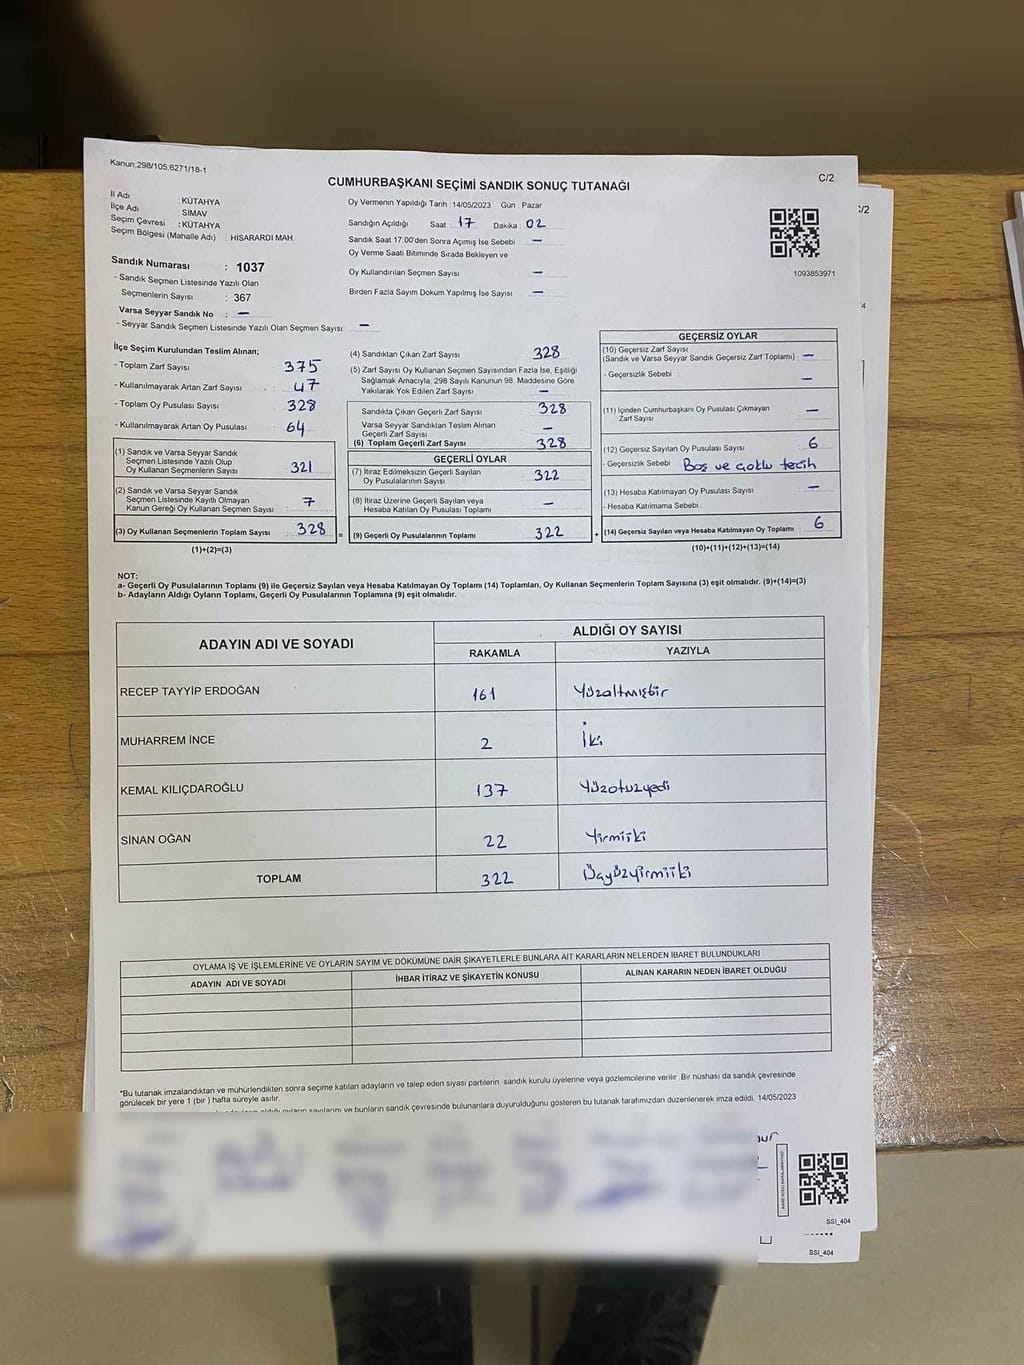 Kanun:298/105;6271/18-1
C/2
CUMHURBAŞKANI SEÇİMİ SANDIK SONUÇ TUTANAĞI
İl Adı : KÜTAHYA
İlçe Adı : SIMAV
Seçim Çevresi : KÜTAHYA
Seçim Bölgesi (Mahalle Adı) : HISARARDI MAH.
Sandık Numarası : 1037
- Sandık Seçmen Listesinde Yazılı Olan
Seçmenlerin Sayısı : 367
Varsa Seyyar Sandık No : –
- Seyyar Sandık Seçmen Listesinde Yazılı Olan Seçmen Sayısı: –
Oy Vermenin Yapıldığı Tarih :14/05/2023 Gün : Pazar
Sandığın Açıldığı Saat : 17 Dakika : 02
Sandık Saat 17:00'den Sonra Açılmış İse Sebebi : –
Oy Verme Saati Bitiminde Sırada Bekleyen ve
Oy Kullandırılan Seçmen Sayısı –
Birden Fazla Sayım Döküm Yapılmış İse Sayısı : –
1093853971
:/2
İlçe Seçim Kurulundan Teslim Alınan;
- Toplam Zarf Sayısı : 375
- Kullanılmayarak Artan Zarf Sayısı : 47
- Toplam Oy Pusulası Sayısı : 328
- Kullanılmayarak Artan Oy Pusulası : 64
(1) Sandık ve Varsa Seyyar Sandık
Seçmen Listesinde Yazılı Olup
Oy Kullanan Seçmenlerin Sayısı : 321
(2) Sandık ve Varsa Seyyar Sandık
Seçmen Listesinde Kayıtlı Olmayan
Kanun Gereği Oy Kullanan Seçmen Sayısı : 7
(3) Oy Kullanan Seçmenlerin Toplam Sayısı : 328 =
(1)+(2)=(3)
(4) Sandıktan Çıkan Zarf Sayısı : 328
(5) Zarf Sayısı Oy Kullanan Seçmen Sayısından Fazla İse, Eşitliği
Sağlamak Amacıyla, 298 Sayılı Kanunun 98. Maddesine Göre
Yakılarak Yok Edilen Zarf Sayısı : –
Sandıkta Çıkan Geçerli Zarf Sayısı : 328
Varsa Seyyar Sandıktan Teslim Alınan
Geçerli Zarf Sayısı : –
(6) Toplam Geçerli Zarf Sayısı : 328
GEÇERLİ OYLAR
(7) İtiraz Edilmeksizin Geçerli Sayılan
Oy Pusulalarının Sayısı : 322
(8) İtiraz Üzerine Geçerli Sayılan veya
Hesaba Katılan Oy Pusulası Toplamı : –
(9) Geçerli Oy Pusulalarının Toplamı : 322 +
GEÇERSİZ OYLAR
(10) Geçersiz Zarf Sayısı
(Sandık ve Varsa Seyyar Sandık Geçersiz Zarf Toplamı) : –
- Geçersizlik Sebebi : –
(11) İçinden Cumhurbaşkanı Oy Pusulası Çıkmayan
Zarf Sayısı : –
(12) Geçersiz Sayılan Oy Pusulası Sayısı : 6
- Geçersizlik Sebebi : Boş ve çoklu tecih
(13) Hesaba Katılmayan Oy Pusulası Sayısı : –
- Hesaba Katılmama Sebebi :
(14) Geçersiz Sayılan veya Hesaba Katılmayan Oy Toplamı : 6
(10)+(11)+(12)+(13)=(14)
NOT:
a- Geçerli Oy Pusulalarının Toplamı (9) ile Geçersiz Sayılan veya Hesaba Katılmayan Oy Toplamı (14) Toplamları, Oy Kullanan Seçmenlerin Toplam Sayısına (3) eşit olmalıdır. (9)+(14)=(3)
b- Adayların Aldığı Oyların Toplamı, Geçerli Oy Pusulalarının Toplamına (9) eşit olmalıdır.
ADAYIN ADI VE SOYADI
ALDIĞI OY SAYISI
RAKAMLA YAZIYLA
RECEP TAYYİP ERDOĞAN 161 Yüzaltmışbir
MUHARREM İNCE 2 İki
KEMAL KILIÇDAROĞLU 137 Yüzotuzyedi
SİNAN OĞAN 22 Yirmiiki
TOPLAM 322 Üçyüzyirmiiki
OYLAMA İŞ VE İŞLEMLERİNE VE OYLARIN SAYIM VE DÖKÜMÜNE DAİR ŞİKAYETLERLE BUNLARA AİT KARARLARIN NELERDEN İBARET BULUNDUKLARI
ADAYIN ADI VE SOYADI İHBAR İTİRAZ VE ŞİKAYETİN KONUSU ALINAN KARARIN NEDEN İBARET OLDUĞU
*Bu tutanak imzalandıktan ve mühürlendikten sonra seçime katılan adayların ve talep eden siyasi partilerin sandık kurulu üyelerine veya gözlemcilerine verilir. Bir nüshası da sandık çevresinde
görülecek bir yere 1 (bir ) hafta süreyle asılır.
sayılarını ve bunların sandık çevresinde bulunanlara duyurulduğunu gösteren bu tutanak tarafımızdan düzenlenerek imza edildi. 14/05/2023
SSI_404
SSI_404